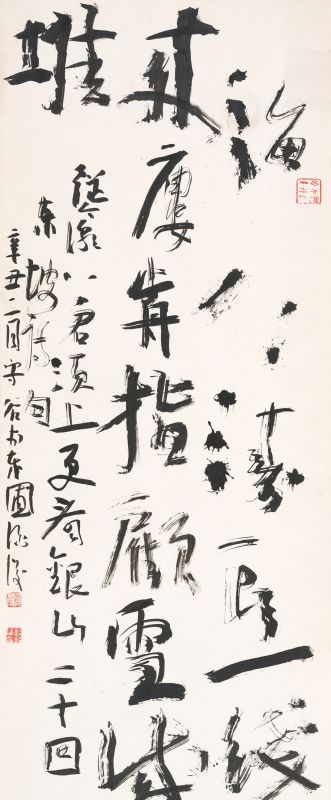 海上濤頭一線
來樓前指顧雪成
堆
從今潮上君須上更看銀山二十回
東坡詩句
辛丑二月